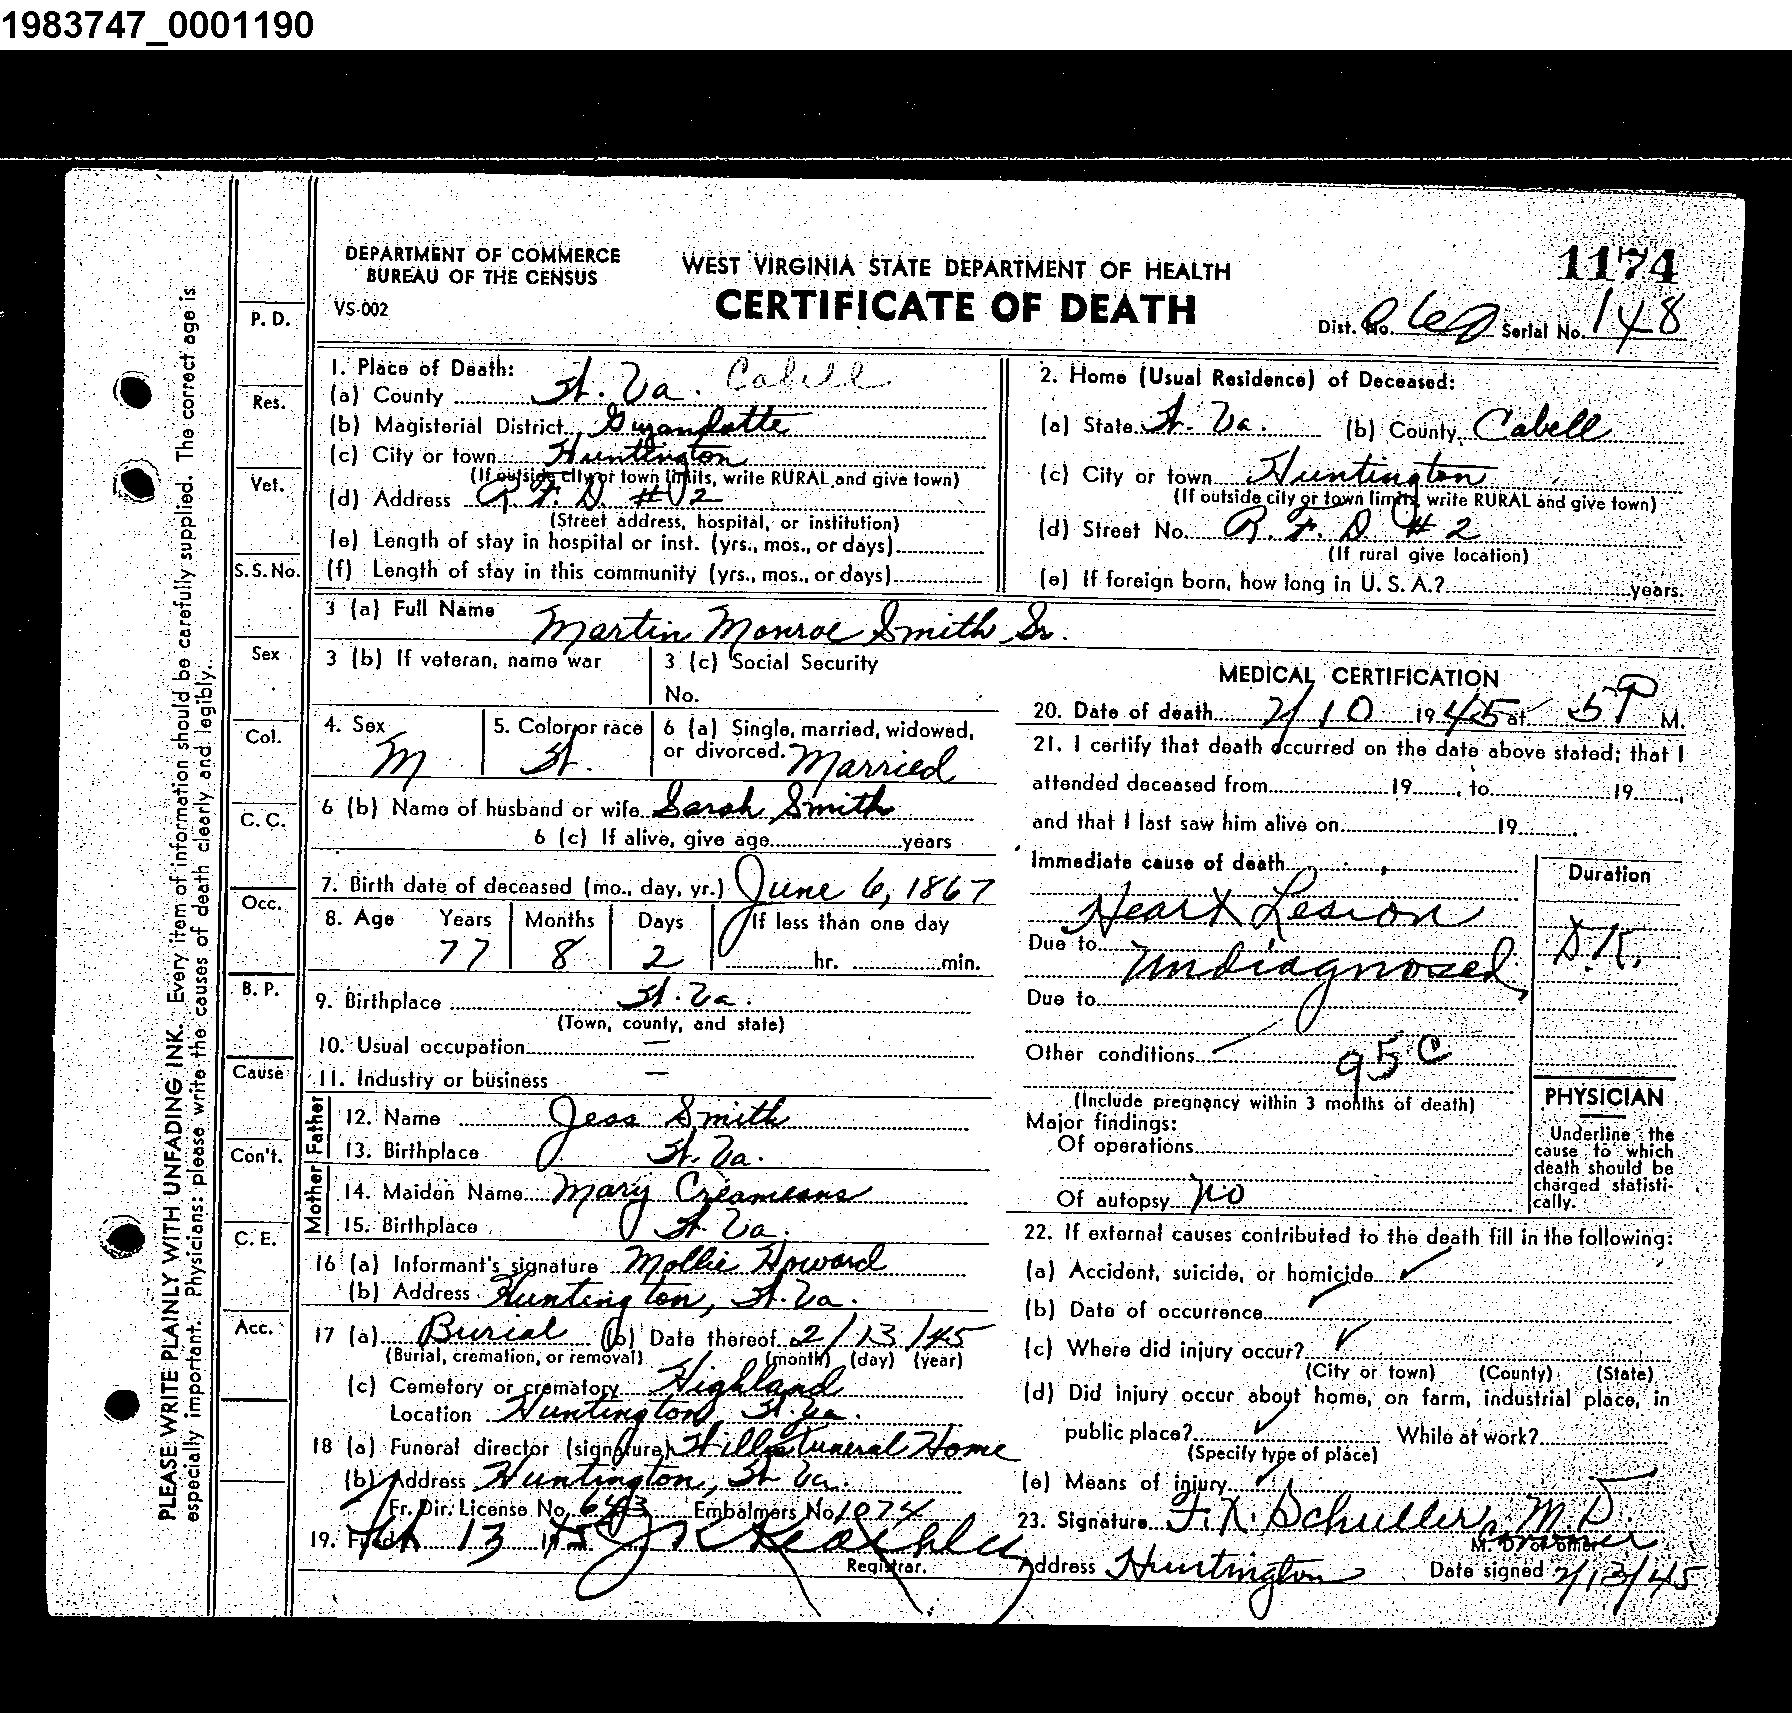 1983747_0001190
DEPARTMENT OF COMMERCE
BUREAU OF THE CENSUS
VS-002
WEST VIRGINIA STATE DEPARTMENT OF HEALTH
CERTIFICATE OF DEATH
1174
Dist. No. 060 Serial No. 148
PLEASE WRITE PLAINLY WITH UNFADING INK. Every item of information should be carefully supplied. The correct age is
especially important. Physicians: please write the causes of death clearly and legibly.
P. D.
Res.
Vet.
S. S. No.
Sex
Col.
C. C.
Occ.
B. P.
Cause
Con't.
C. E.
Acc.
1. Place of Death:
(a) County W. Va. Cabell
(b) Magisterial District Guyandotte
(c) City or town Huntington
(If outside city or town limits, write RURAL and give town)
(d) Address R. F. D. #2
(Street address, hospital, or institution)
(e) Length of stay in hospital or inst. (yrs., mos., or days)
(f) Length of stay in this community (yrs., mos., or days)
2. Home (Usual Residence) of Deceased:
(a) State W. Va. (b) County Cabell
(c) City or town Huntington
(If outside city or town limits, write RURAL and give town)
(d) Street No. R. F. D. #2
(If rural give location)
(e) If foreign born, how long in U. S. A.? years.
3 (a) Full Name Martin Monroe Smith Sr.
3 (b) If veteran, name war
3 (c) Social Security
No.
4. Sex M
5. Color or race W.
6 (a) Single, married, widowed,
or divorced. Married
6 (b) Name of husband or wife Sarah Smith
6 (c) If alive, give age years
7. Birth date of deceased (mo., day, yr.) June 6, 1867
8. Age Years Months Days If less than one day
77 8 2 hr. min.
9. Birthplace W. Va.
(Town, county, and state)
10. Usual occupation —
11. Industry or business —
Father
12. Name Jess Smith
13. Birthplace W. Va.
Mother
14. Maiden Name Mary Creameans
15. Birthplace W. Va.
16 (a) Informant's signature Mollie Howard
(b) Address Huntington, W. Va.
17 (a) Burial (b) Date thereof 2/13/45
(Burial, cremation, or removal) (month) (day) (year)
(c) Cemetery or crematory Highland
Location Huntington, W. Va.
18 (a) Funeral director (signature) Funeral Home
(b) Address Huntington, W. Va.
Fr. Dir. License No. 643 Embalmers No. 1074
19. Filed 13
Registrar.
MEDICAL CERTIFICATION
20. Date of death 2/10 1945 at 5 P M.
21. I certify that death occurred on the date above stated; that I
attended deceased from 19 , to 19 ,
and that I last saw him alive on 19 .
Immediate cause of death
Heart Lesion
Due to
Undiagnosed
Due to
Other conditions
95 C
(Include pregnancy within 3 months of death)
Duration
D.K.
Major findings:
Of operations
Of autopsy no
PHYSICIAN
Underline the
cause to which
death should be
charged statisti-
cally.
22. If external causes contributed to the death fill in the following:
(a) Accident, suicide, or homicide ✓
(b) Date of occurrence ✓
(c) Where did injury occur? ✓
(City or town) (County) (State)
(d) Did injury occur about home, on farm, industrial place, in
public place? ✓ While at work?
(Specify type of place)
(e) Means of injury ✓
23. Signature F. X. Schuller, M. D.
Coroner
Address Huntington Date signed 2/13/45